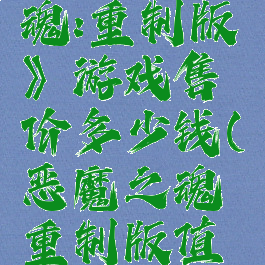 魂:重制版
》游戏售
价多少钱(
恶魔之魂
重制版值